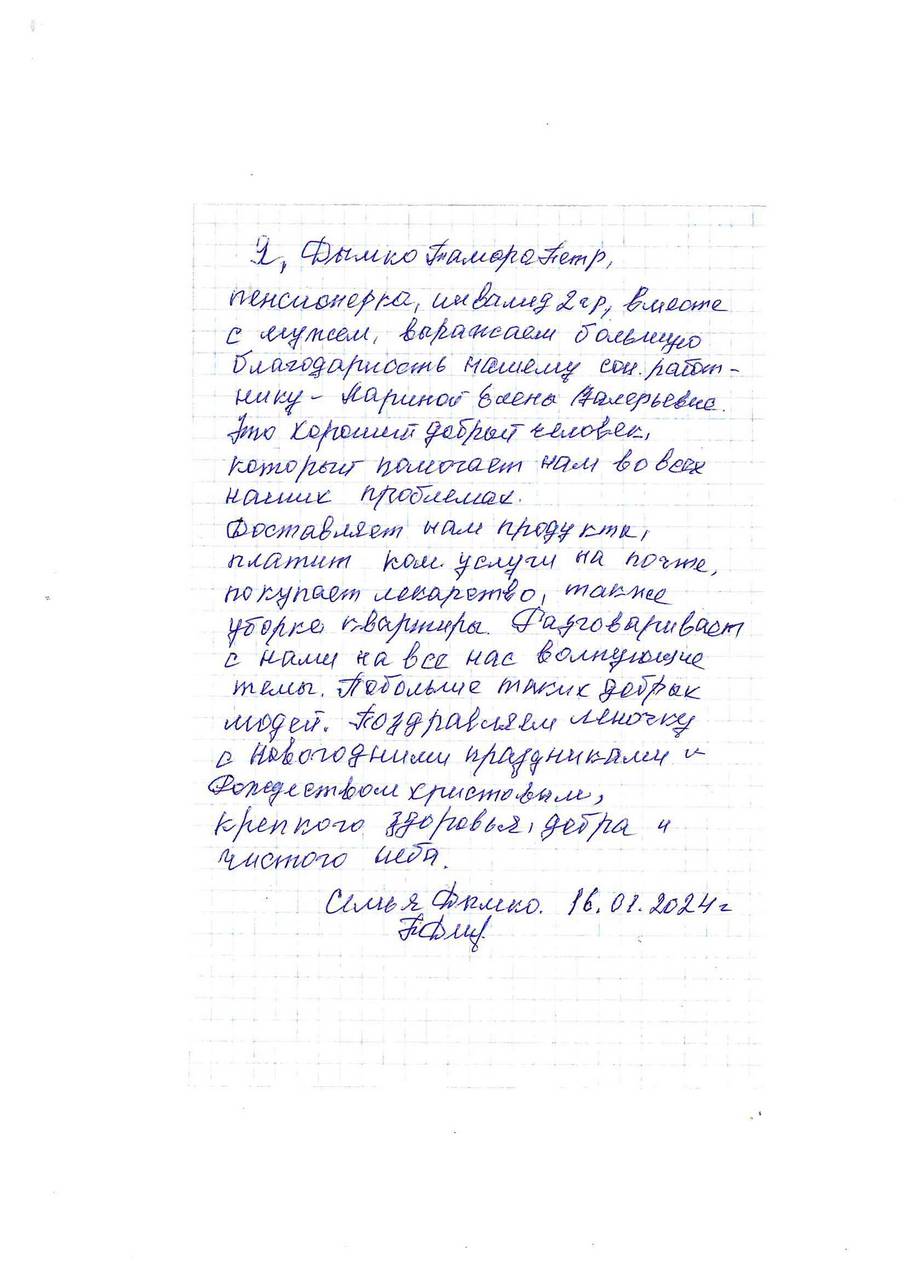 Я, Дымко Тамара Петр,
пенсионерка, инвалид 2 гр, вместе
с мужем, выражаем большую
благодарность нашему соц. работ-
нику - Лариной Елена Валерьевна.
Это хороший добрый человек,
который помогает нам во всех
наших проблемах.
Доставляет нам продукты,
платит ком. услуги на почте,
покупает лекарство, также
уборка квартиры. Разговаривает
с нами на все нас волнующие
темы. Побольше таких добрых
людей. Поздравляем Леночку
с Новогодними праздниками и
Рождеством христовым,
крепкого здоровья, добра и
чистого неба.
Семья Дымко. 16.01.2024г